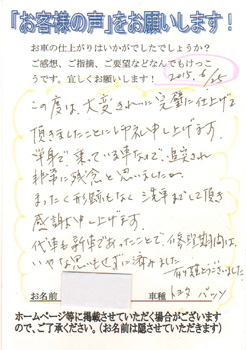 「お客様の声」をお願いします!
お車の仕上がりはいかがでしたでしょうか?
ご感想、ご指摘、ご要望などなんでもけっこ
うです。宜しくお願いします!
2015.6/25
この度は、大変きれいに完璧に仕上げて
頂きましたことに心より御礼申し上げます。
乗っている車なので、追突され
非常に残念と思いましたが、
まったく形跡もなく 洗車までして頂き
感謝申し上げます。
代車も新車であったことで、修理期間は、
いやな思いもせずに済みました
有り難とうございました
お名前 車種 トヨタ パッソ
ホームページ等に掲載させていただく場合がございます
ので、ご了承ください。(お名前は隠させていただきます)